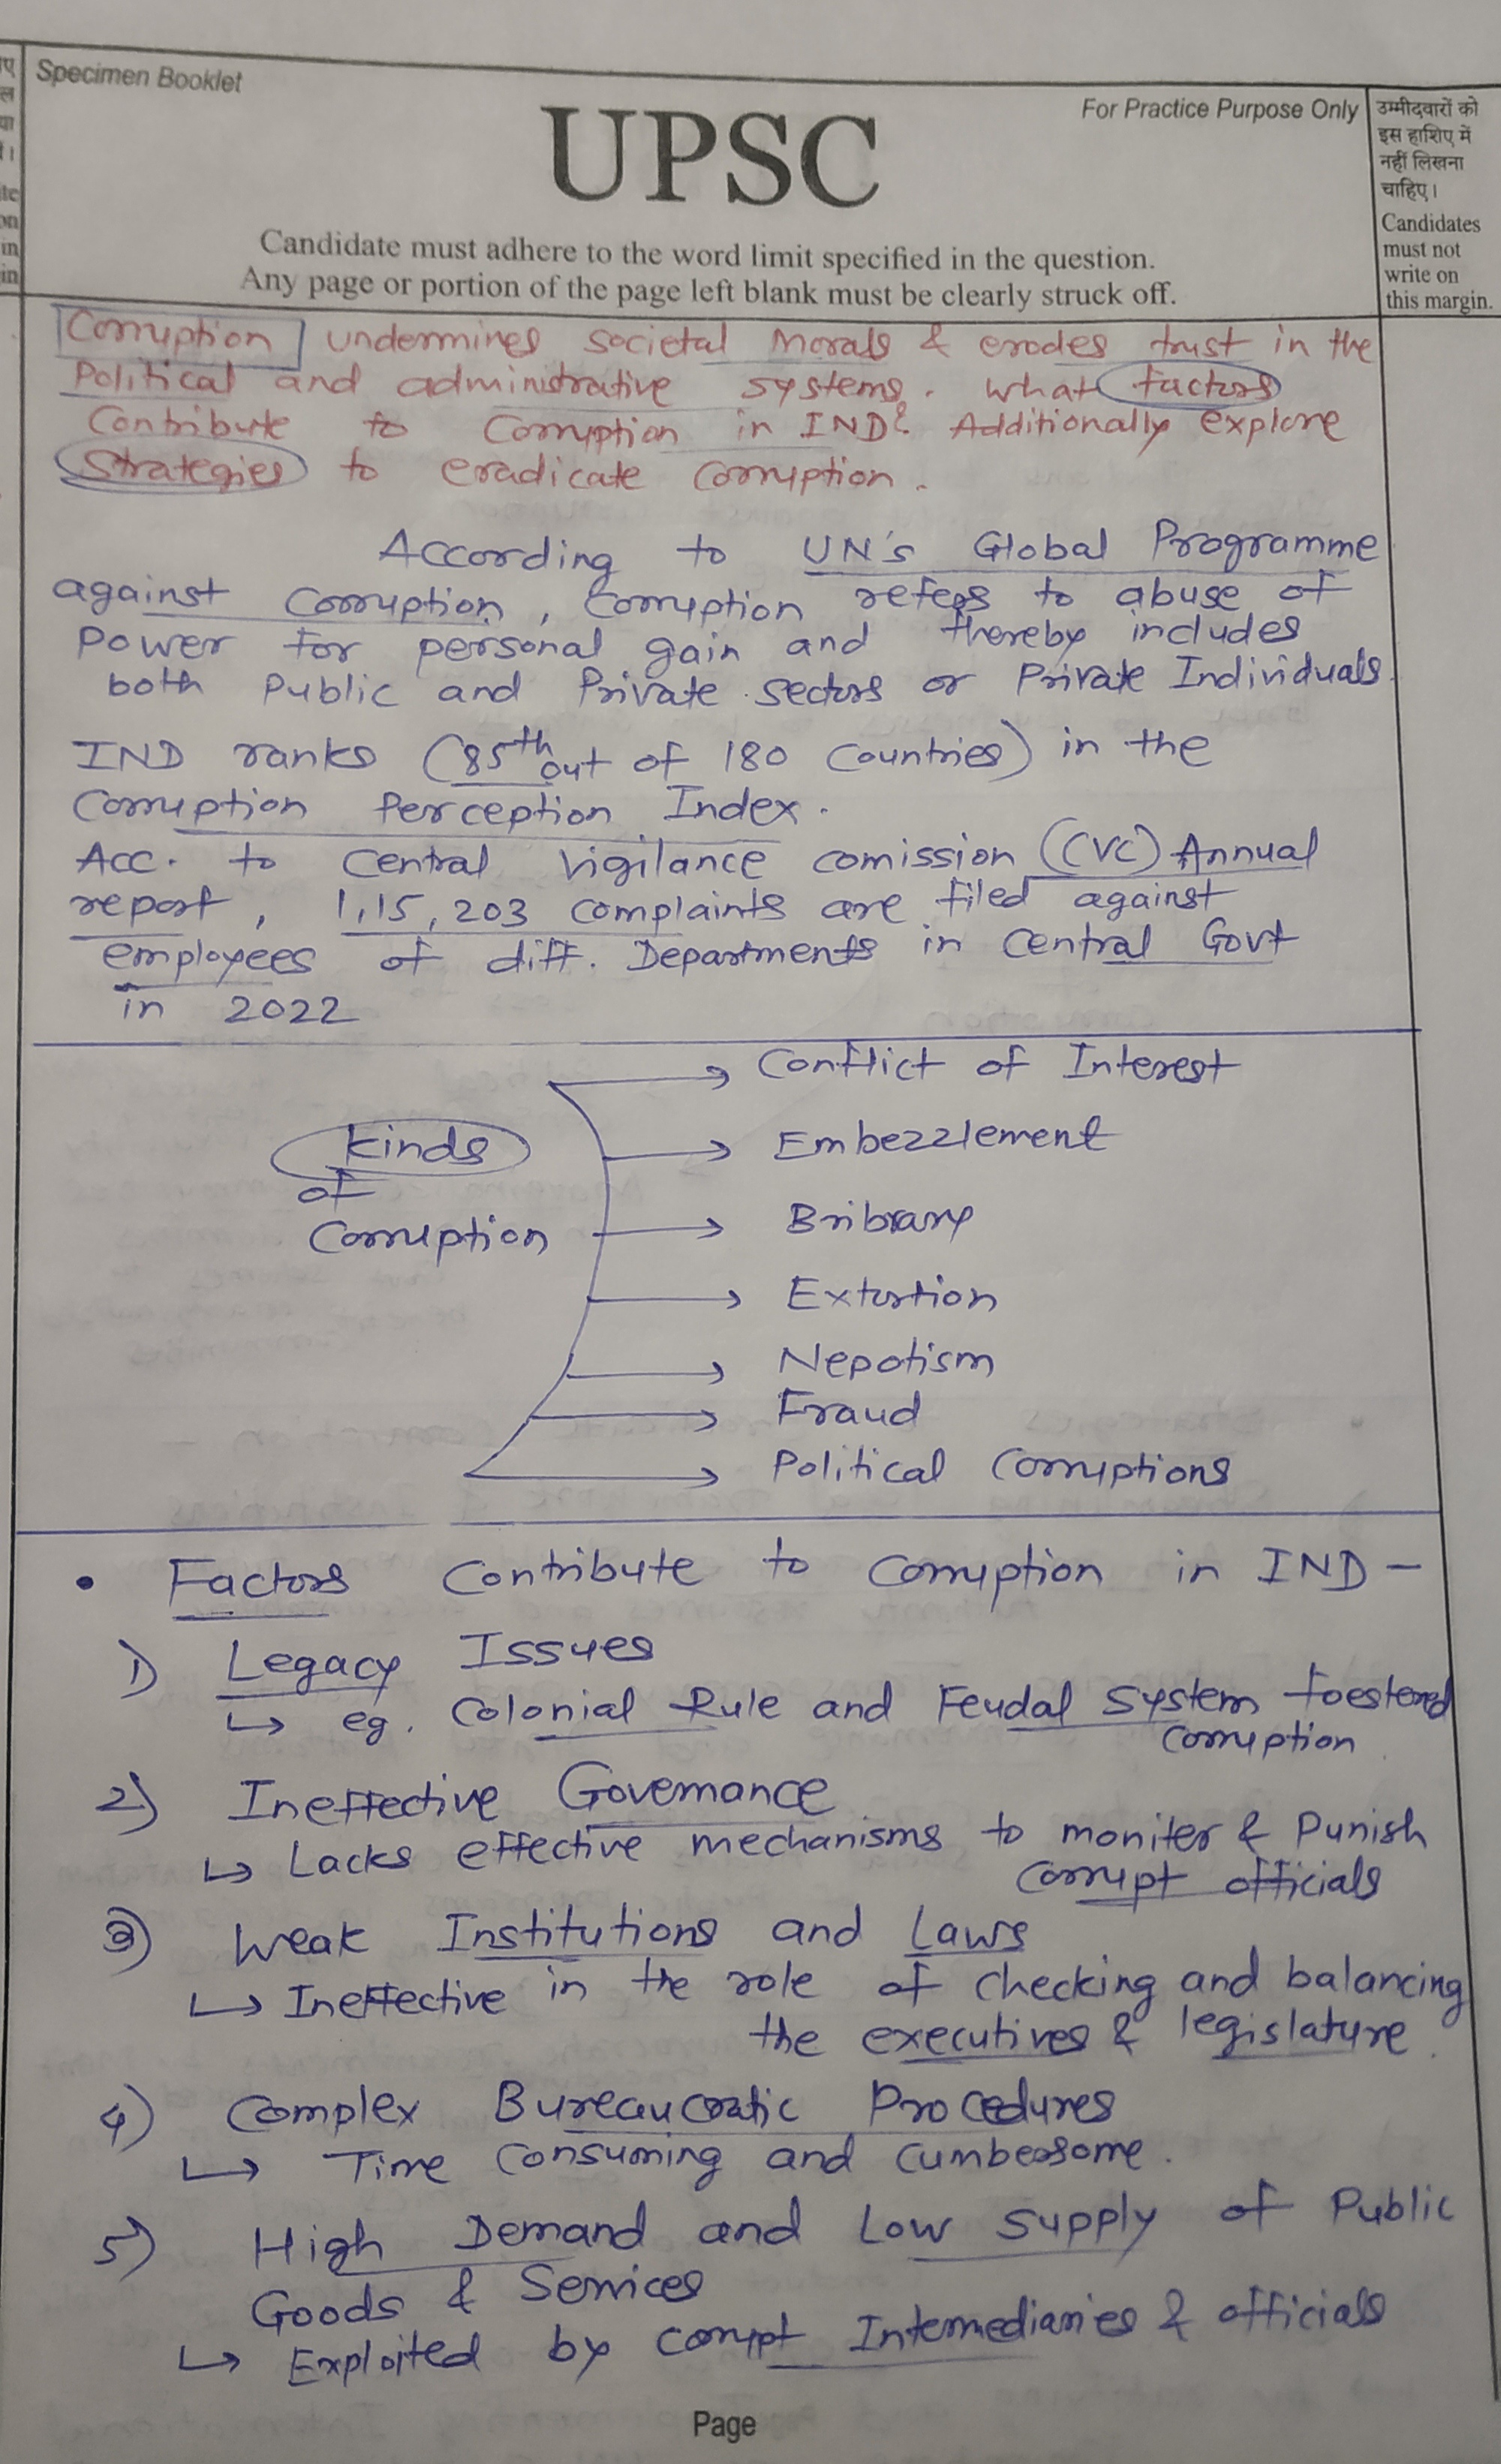 Specimen Booklet
UPSC
For Practice Purpose Only
उम्मीदवारों को
इस हाशिए में
नहीं लिखना
चाहिए।
Candidates
must not
write on
this margin.
Candidate must adhere to the word limit specified in the question.
Any page or portion of the page left blank must be clearly struck off.
Corruption undermines societal Morals & erodes trust in the
Political and administrative systems. What factors
Contribute to Corruption in IND? Additionally explore
Strategies to eradicate corruption.
According to UN's Global Programme
against Corruption, Corruption refers to abuse of
Power for personal gain and thereby includes
both Public and Private sectors or Private Individuals.
IND ranks (85th out of 180 countries) in the
Corruption Perception Index.
Acc. to Central Vigilance comission (CVC) Annual
report, 1,15,203 complaints are filed against
employees of diff. Departments in Central Govt
in 2022
Kinds
of
Corruption
→ Conflict of Interest
→ Embezzlement
→ Bribrary
→ Extortion
→ Nepotism
→ Fraud
→ Political Corruptions
• Factors Contribute to Corruption in IND -
1) Legacy Issues
↳ eg. Colonial Rule and Feudal System foestered
Corruption
2) Ineffective Governance
↳ Lacks effective mechanisms to moniter & Punish
Corrupt officials
3) Weak Institutions and Laws
↳ Ineffective in the role of checking and balancing
the executives & legislature.
4) Complex Bureaucratic Procedures
↳ Time Consuming and Cumbersome.
5) High Demand and Low Supply of Public
Goods & Services
↳ Exploited by corrupt Intermediaries & officials
Page